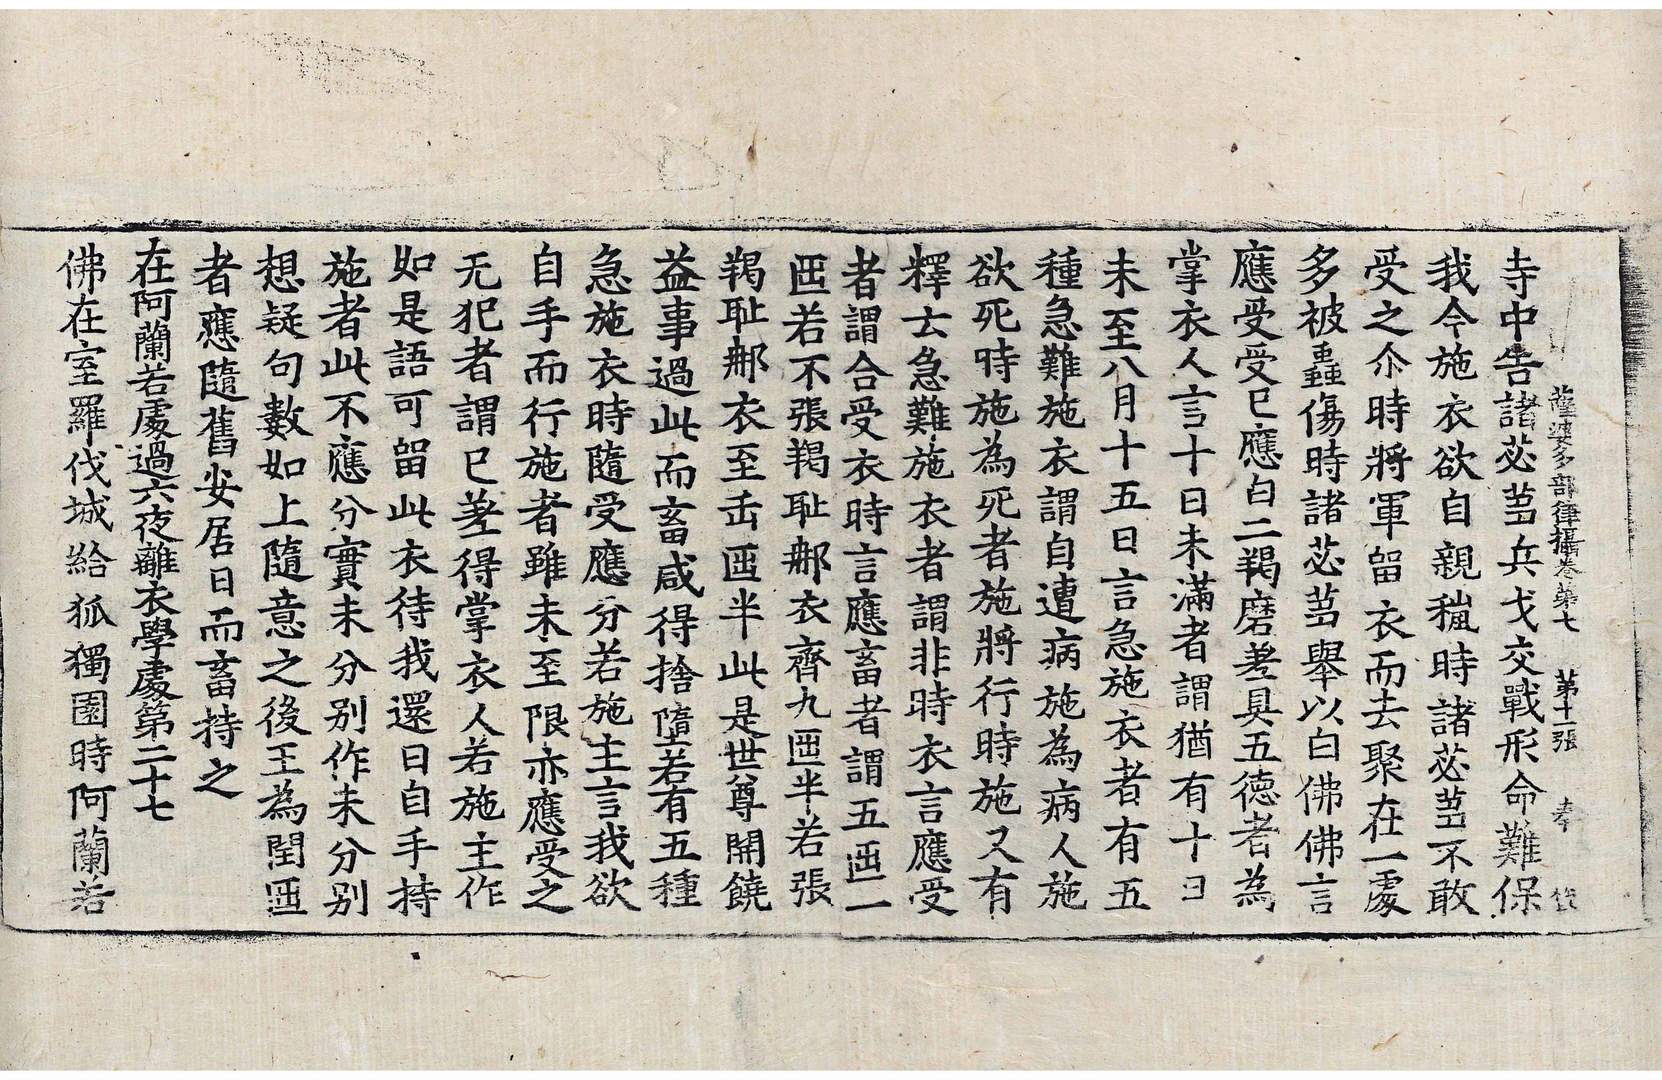 薩婆多部律攝卷第七 第十一張 孝
寺中告諸苾芻兵戈交戰形命難保
我今施衣欲自親穐時諸苾芻不敢
受之尒時將軍留衣而去聚在一處
多被蟲傷時諸苾芻舉以白佛佛言
應受受已應白二羯磨差具五德者為
掌衣人言十日未滿者謂猶有十日
未至八月十五日言急施衣者有五
種急難施衣謂自遭病施為病人施
欲死時施為死者施將行時施又有
釋云急難施衣者謂非時衣言應受
者謂合受衣時言應畜者謂五迊一
迊若不張羯恥郍衣齊九迊半若張
羯恥郍衣至缶迊半此是世尊開饒
益事過此而畜咸得捨墮若有五種
急施衣時隨受應分若施主言我欲
自手而行施者雖未至限亦應受之
无犯者謂已差得掌衣人若施主作
如是語可留此衣待我還日自手持
施者此不應分實未分別作未分別
想疑句數如上隨意之後王為閏迊
者應隨舊安居日而畜持之
在阿蘭若處過六夜離衣學處第二十七
佛在室羅伐城給孤獨園時阿蘭若